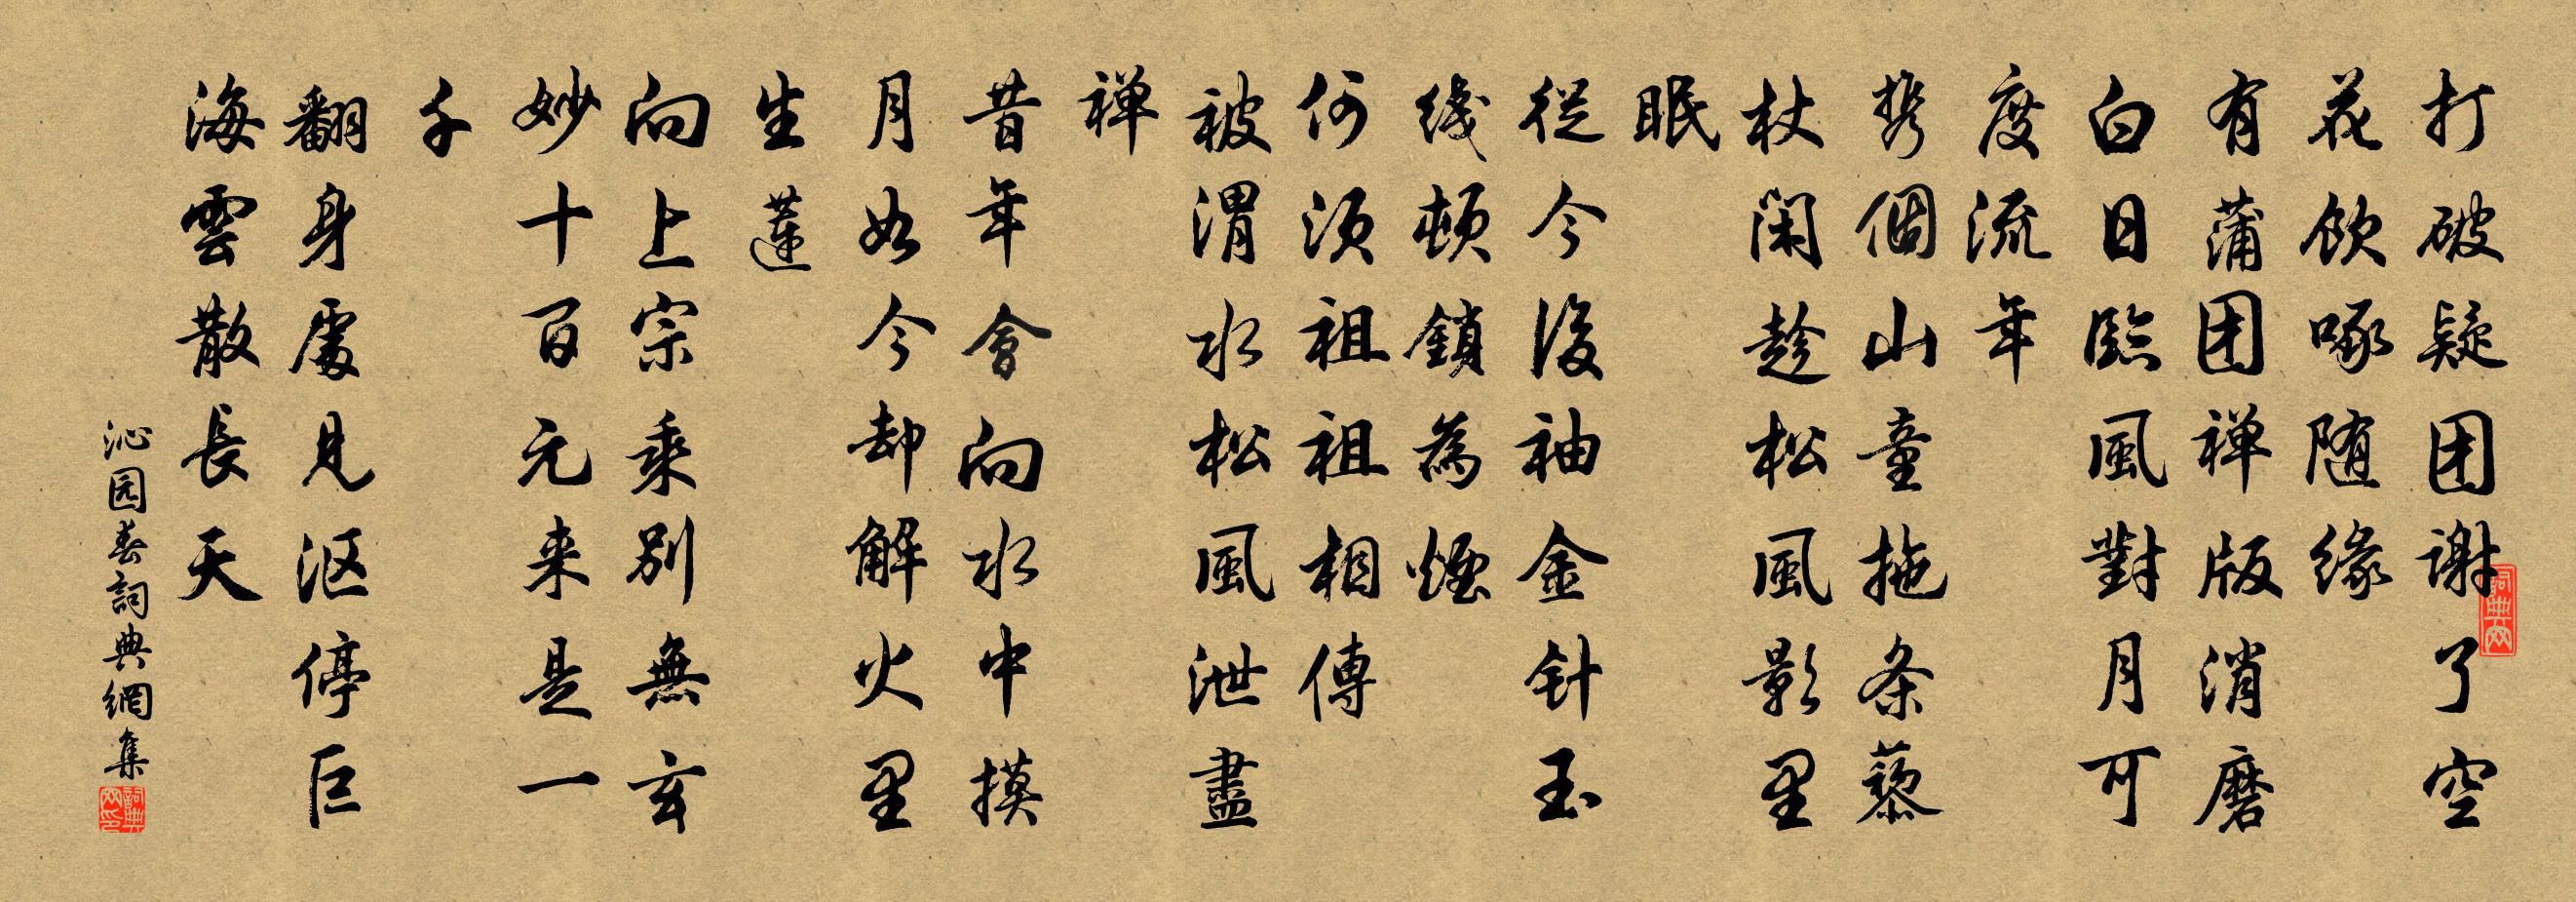 打破疑团谢了空
花飲啄随緣
有蒲团禅版消磨
白日臨風對月可
度流年
携個山童拖条藜
杖闲趁松風影里
眠
從今後袖金针玉
线頓鎖為煙
何须祖祖相傳
被渭水松風泄盡
禅
昔年會向水中摸
月如今却解火里
生蓮
向上宗乘别無玄
妙十百元来是一
千
翻身處見沤停巨
海雲散長天
沁园春詞典網集
詞典网
詞典网印